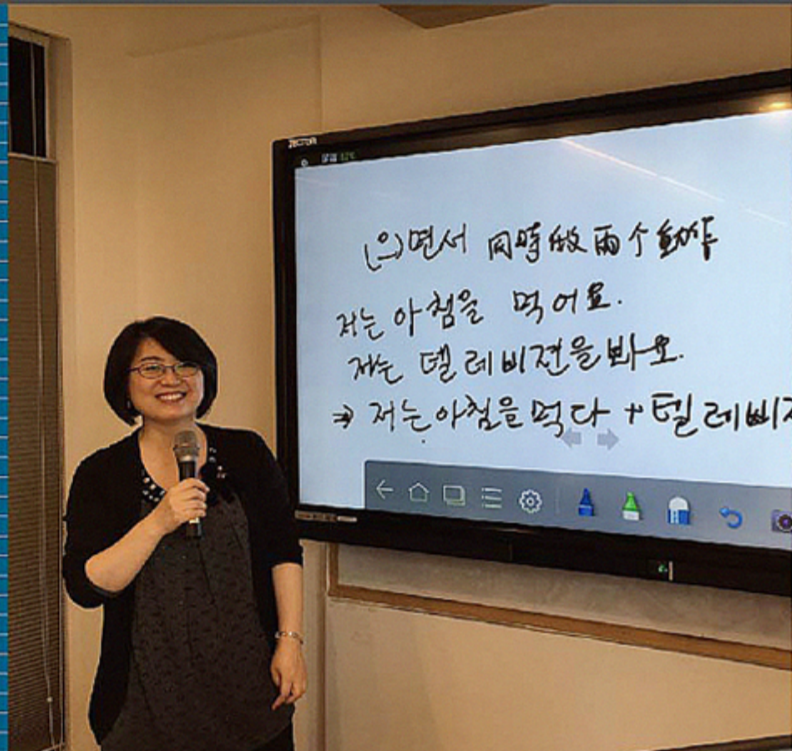 (으)면서 同時做兩个動作
저는 아침을 먹어요.
저는 텔레비젼을 봐요.
⇒ 저는 아침을 먹다 + 텔레비